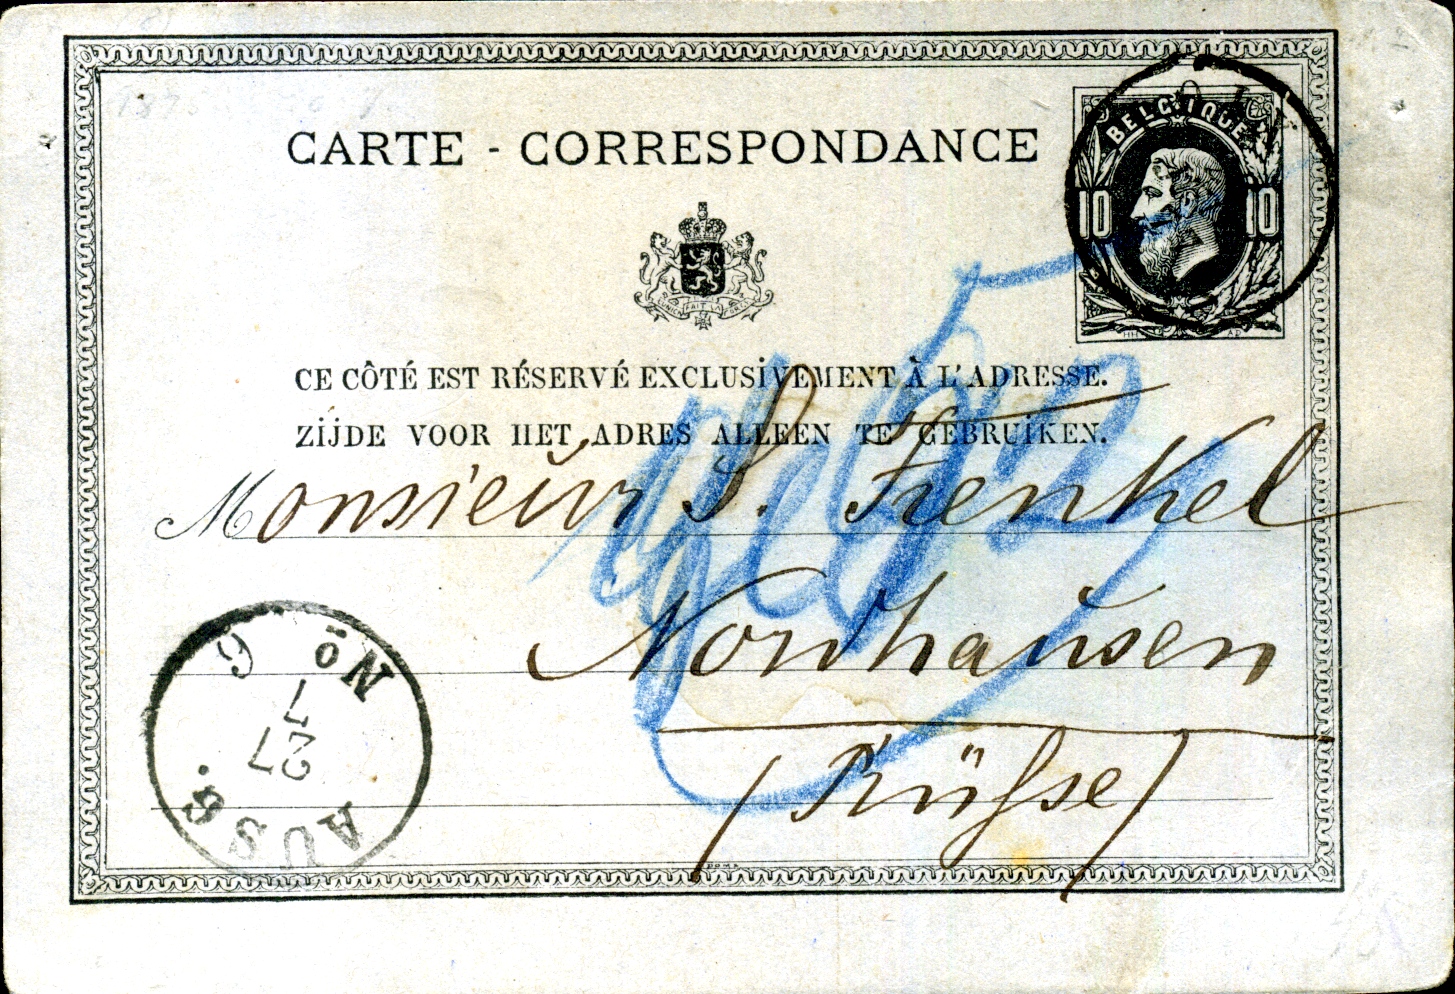 CARTE - CORRESPONDANCE
BELGIQUE
10 10
L'UNION FAIT LA FORCE
CE CÔTÉ EST RÉSERVÉ EXCLUSIVEMENT À L'ADRESSE.
ZIJDE VOOR HET ADRES ALLEEN TE GEBRUIKEN.
Monsieur S. Frenkel
Nordhausen
No 6
1
27
AUSG.